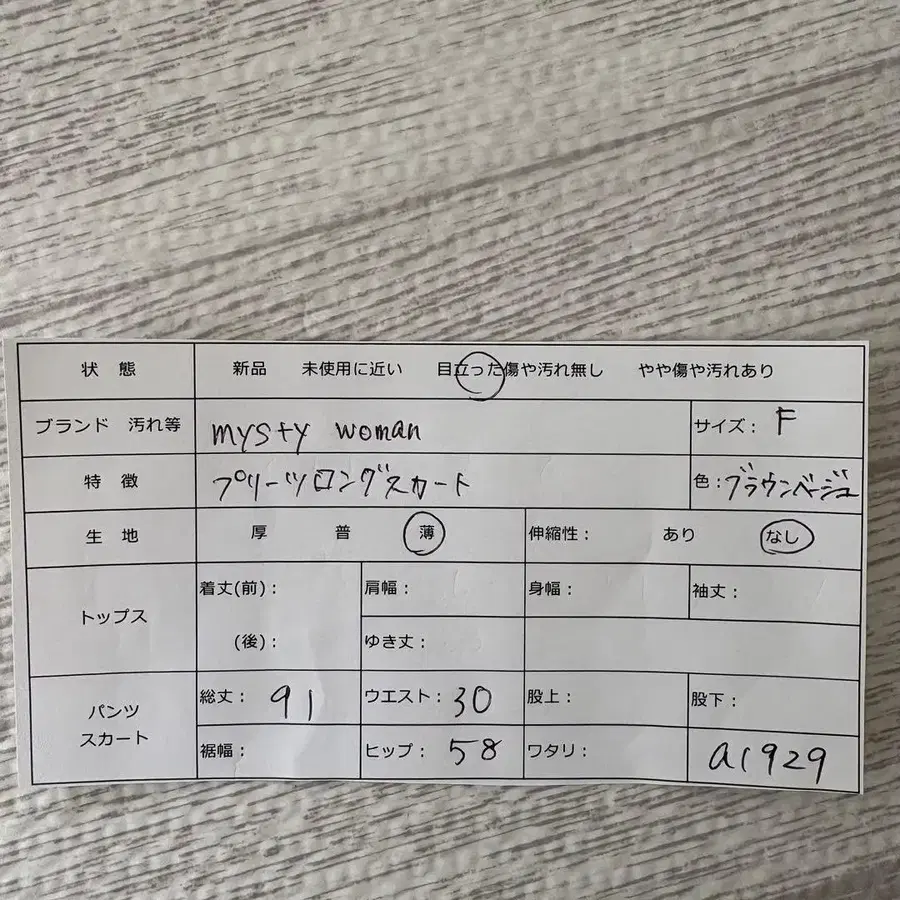 状 態 新品 未使用に近い 目立った傷や汚れ無し やや傷や汚れあり
ブランド 汚れ等 mysty woman サイズ: F
特 徴 プリーツロングスカート 色:ブラウンベージュ
生 地 厚 普 薄 伸縮性: あり なし
トップス 着丈(前): 肩幅: 身幅: 袖丈:
(後): ゆき丈:
パンツ スカート 総丈: 91 ウエスト: 30 股上: 股下:
裾幅: ヒップ: 58 ワタリ: a1929